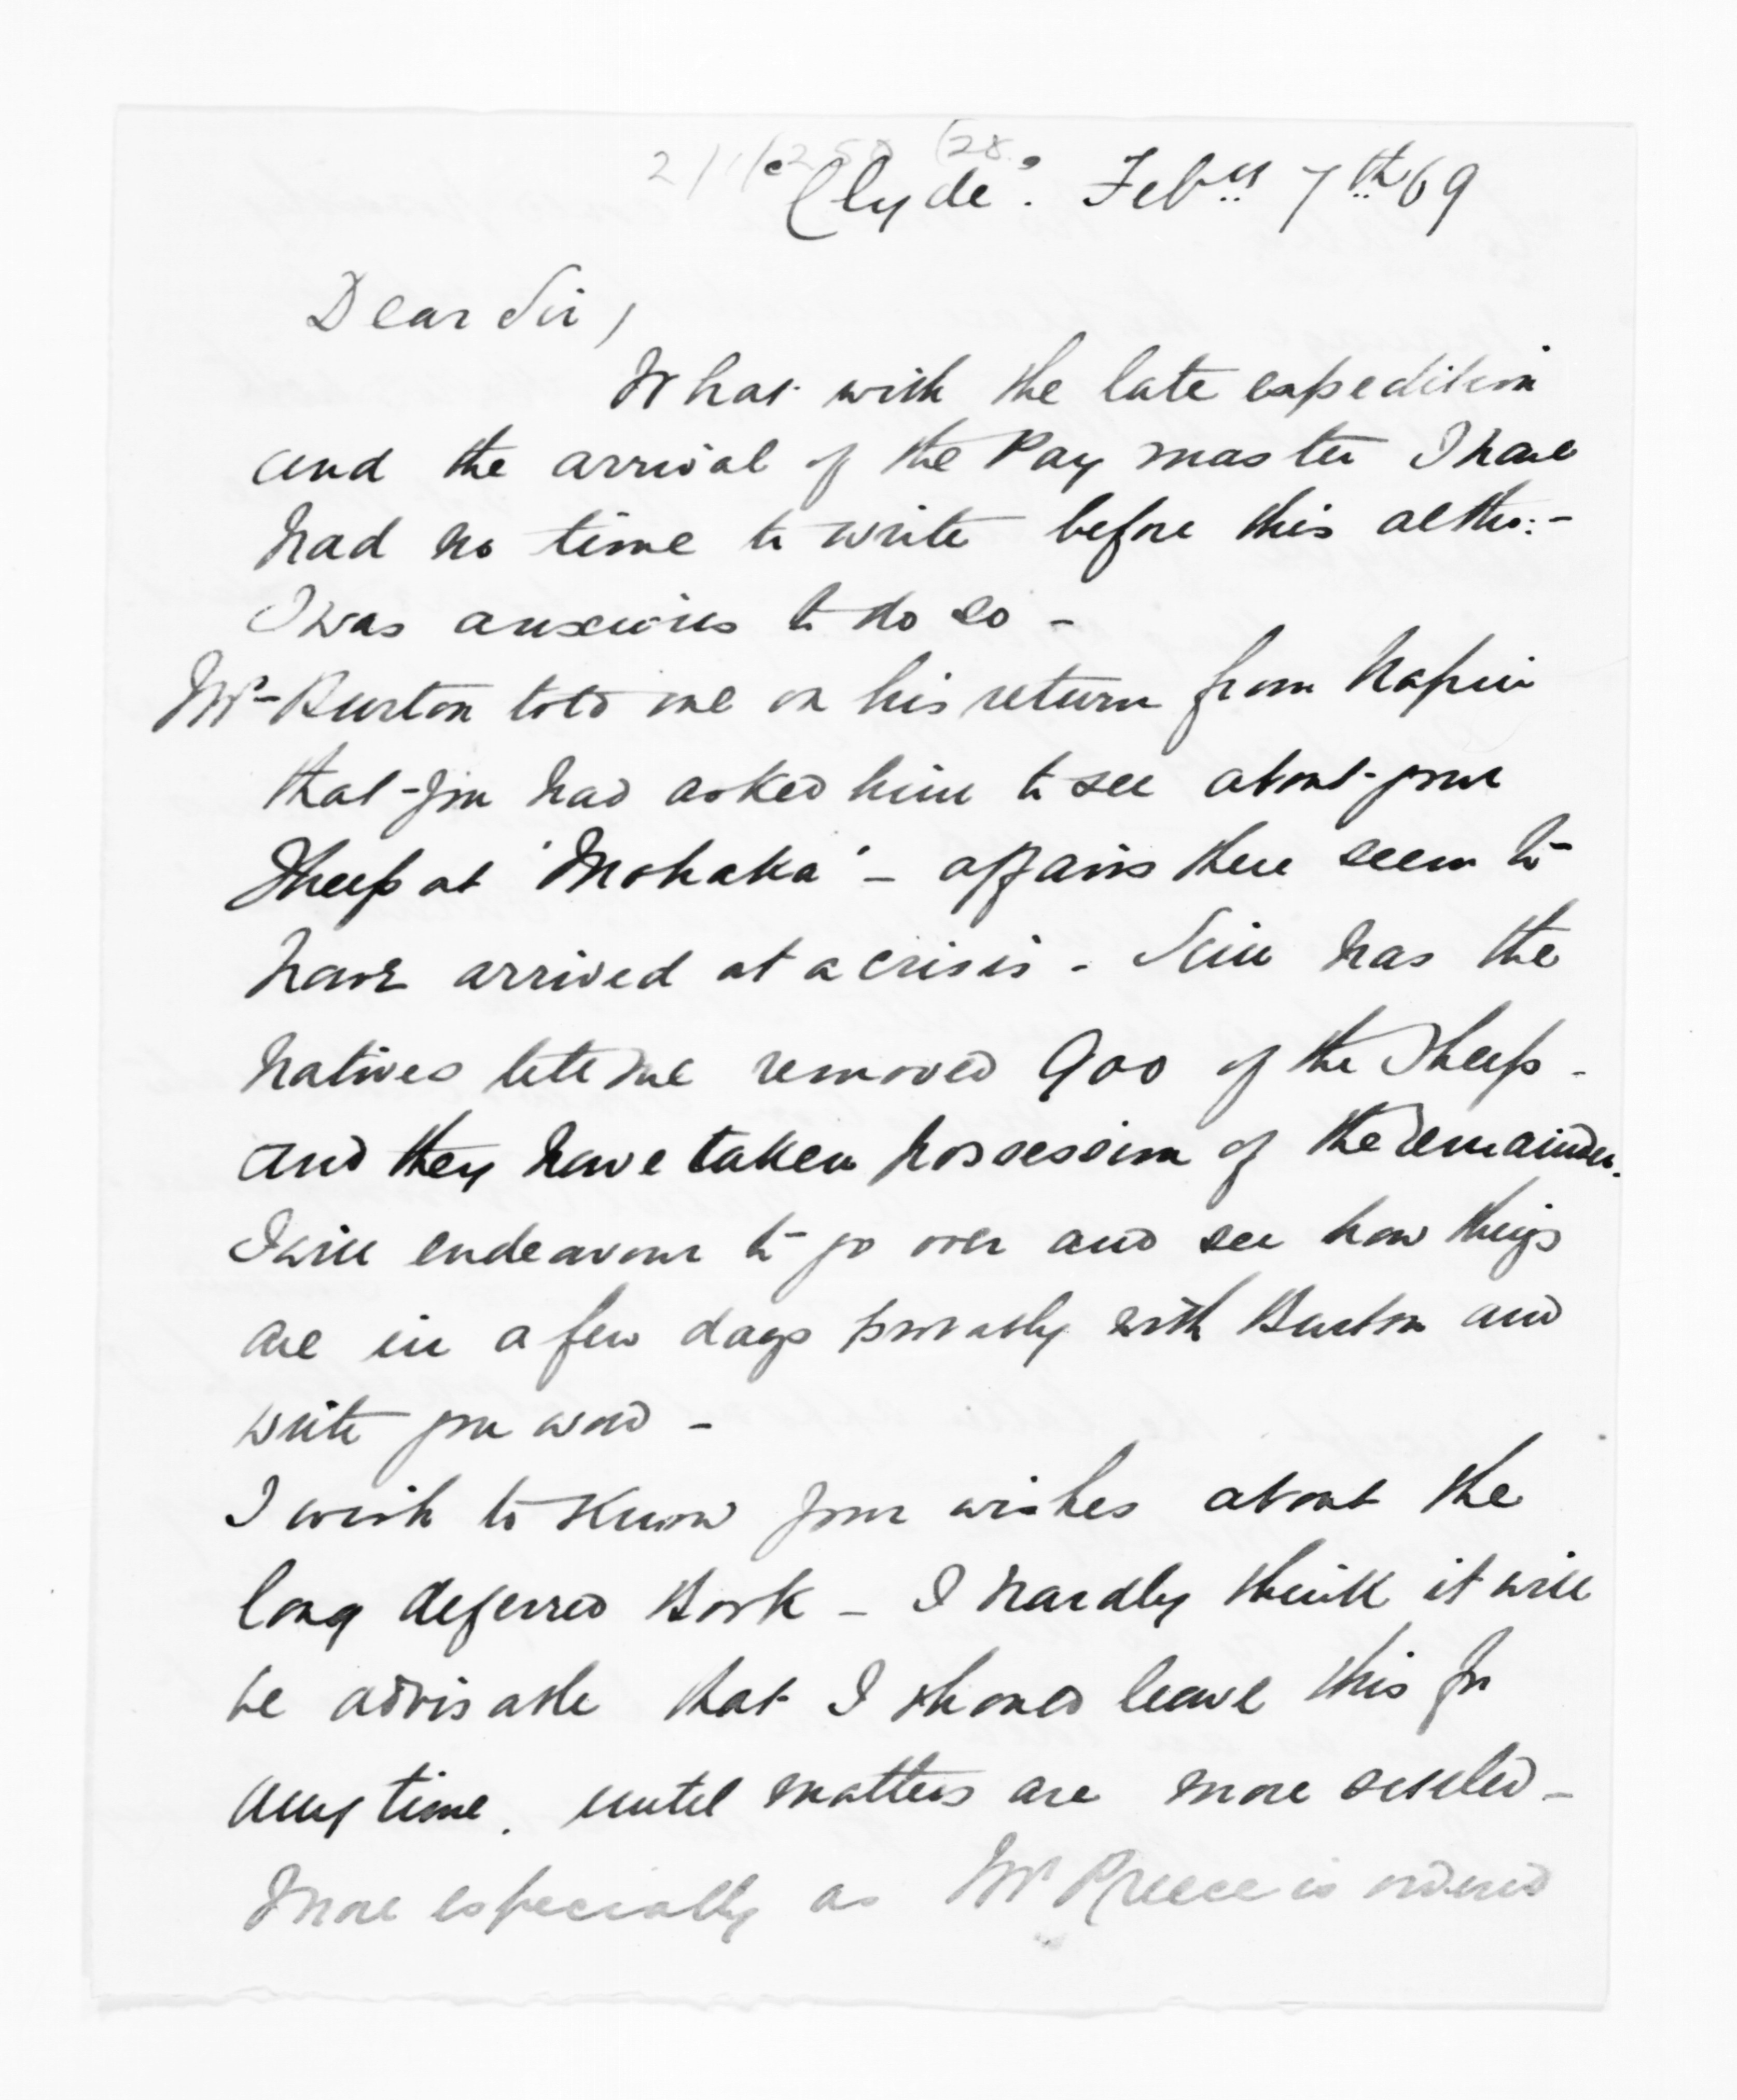 "Clyde". Feby 7th 69
Dear Sir,
What with the late expedition
and the arrival of the Pay master I have
had no time to write before this altho:-
I was anxious to do so -
Mr- Burton told me on his return from Napier
that you had asked him to see about your
Sheep at 'Mohaka' - affairs there seem to
have arrived at a crisis - has the
Natives removed 900 of the Sheep -
and they have taken possession of the remainder.
I will endeavour to go over and see how things
are in a few days probably with Burton and
write you word -
I wish to know your wishes about the
long deferred Book - I hardly think it will
be advisable that I should leave this for
any time. until matters are more settled -
More especially as Mr Preece is ordered